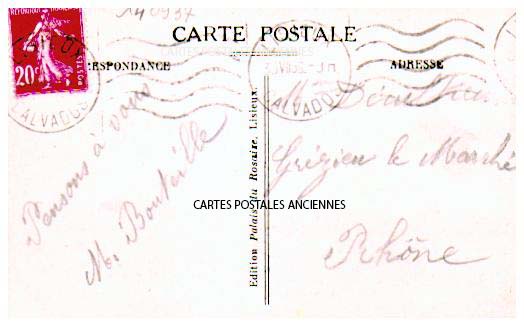 140937
CARTE POSTALE
RESPONDANCE
ADRESSE
20c
POSTES
LISIEUX
CALVADOS
CALVADOS
Pensons à vous
M. Bouteille
Edition Palais du Rosaire, Lisieux.
CARTES POSTALES ANCIENNES
le Marché
Rhône